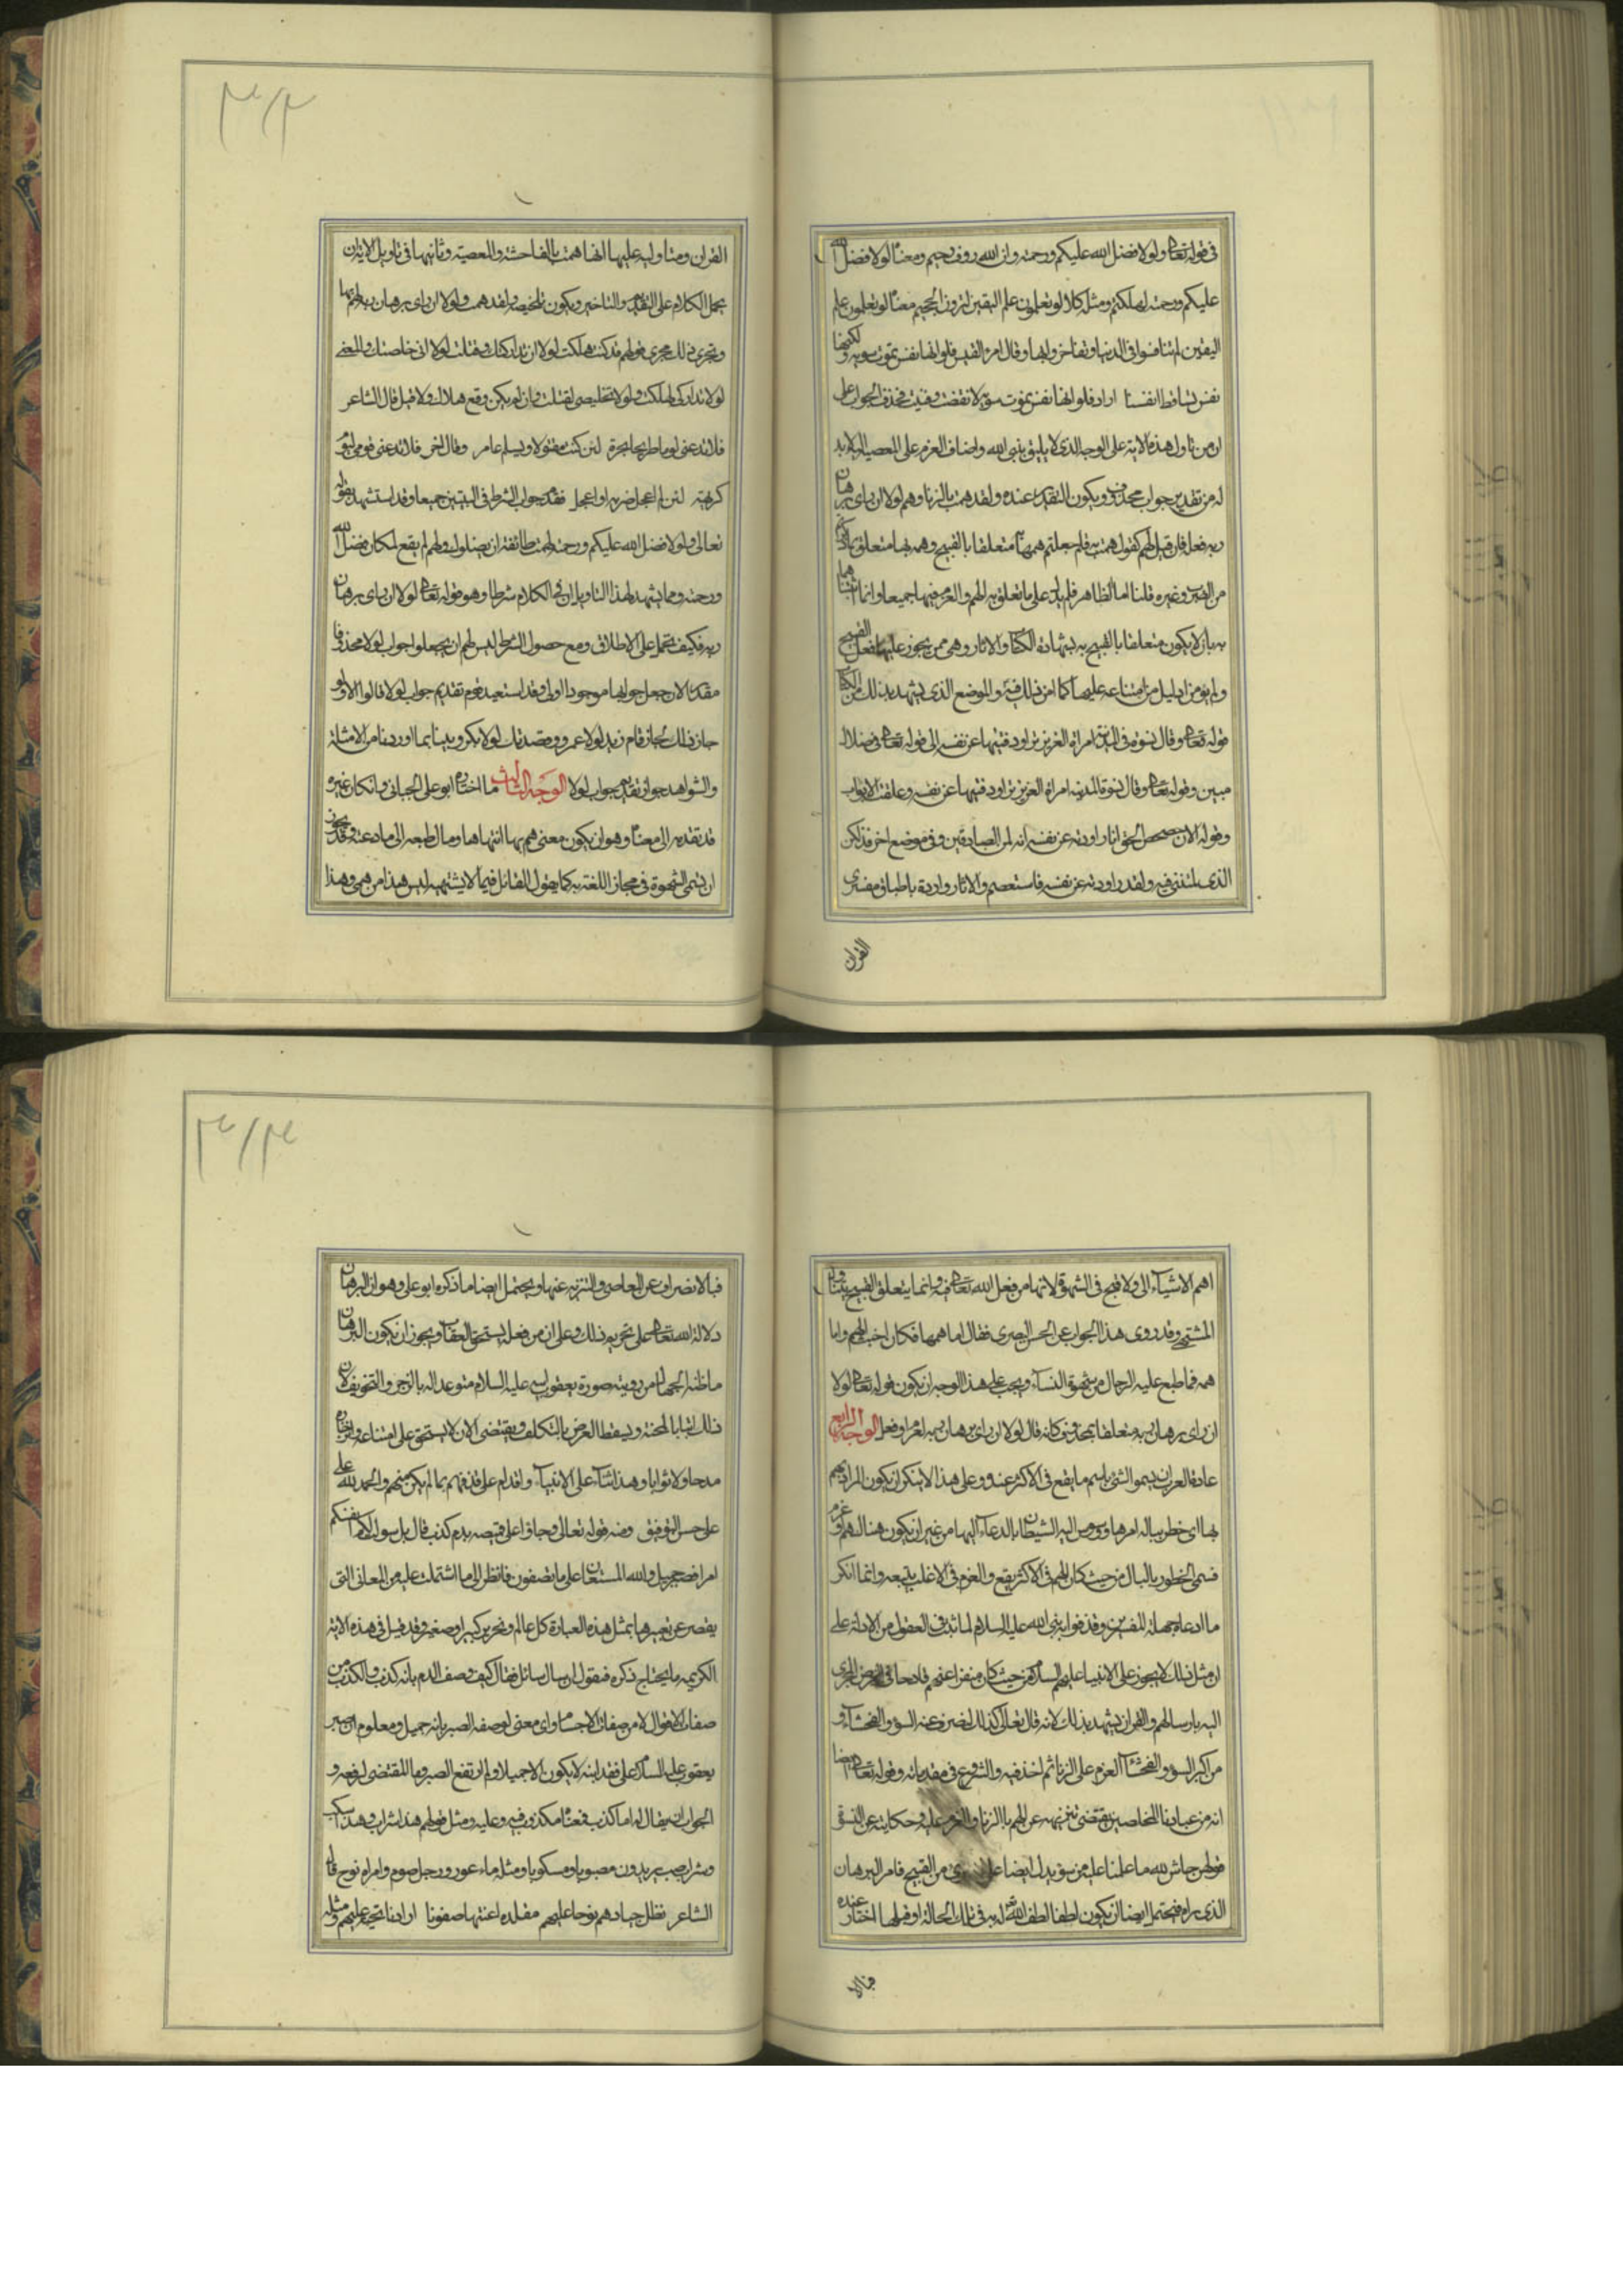 في قوله تعالى ولولا فضل الله عليكم ورحمته وان الله رؤف رحيم ومعناه لولا فضل الله
عليكم ورحمته لهلكتم ومثله كلا لو تعلمون علم اليقين لترون الجحيم معناه لو تعلمون علم
اليقين لم تتنافسوا في الدنيا وتفاخروا بها وقال امرؤ القيس فلو انها نفس تموت سوية ولكنها
نفس تساقط انفسا اراد فلو انها نفس تموت سوية لانقضت وفنيت فحذف الجواب على
ان من تاول هذه الاية على الوجه الذي لا يليق بنبي الله واضاف العزم على المعصية اليه لا بد
له من تقدير جواب محذوف ويكون التقدير عنده ولقد همت بالزنا وهم لولا ان راى برهان
ربه فعل فان قيل لهم كقوله همت به فلم جعلتم همها متعلقا بالقبيح وهمه بها متعلقا
من الضرب وغيره قلنا اما الظاهر فلم يدل على ما تعلق به الهم والعزم فيهما جميعا وانما اثبتنا همها
به بان لا يكون متعلقا بالقبيح به بشهادة الكتاب والاثار وهي ممن يجوز عليها فعل القبيح
ولم يؤمن دليل من امتناعه عليها كما امن ذلك فيه والموضع الذي يشهد بذلك من الكتاب
قوله تعالى وقال نسوة في المدينة امراة العزيز تراود فتيها عن نفسه الى قوله تعالى في ضلال
مبين وقوله تعالى وقال نسوة المدينه امراة العزيز تراود فتيها عن نفسه وغلقت الابواب
وقوله الان حصحص الحق انا راودته عن نفسه انه لمن الصادقين وفي موضع اخر فذلكن
الذي لمتنني فيه ولقد راودته عن نفسه فاستعصم والاثار واردة باطباق مفسري
القران
القران ومتاوليه عليها انها همت بالفاحشة والمعصية وثانيها في تاويل الاية ان
يحمل الكلام على التقديم والتاخير ويكون تلخيصه ولقد همت به ولولا ان راى برهان ربه لهم بها
ويجرى ذلك مجرى قولهم قد كنت هلكت لولا ان تداركتك وقتلت لولا اني خلصتك والمعنى
لولا تداركي لهلكت ولولا تخليصي لقتلت وان لم يكن وقع هلاك ولا قتل قال الشاعر
فلا تدعني قومي صريحا لحرة لئن كنت مقتولا ويسلم عامر وقال اخر فلا تدعني قومي ليوم
كريهة لئن لم اعجل ضربة او اعجل فقدم جواب الشرط في البيتين جميعا وقد استشهد بقوله
تعالى ولولا فضل الله عليكم ورحمته لهمت طائفة ان يضلوك ولهم لم يقع لمكان فضل الله
ورحمته ومما يشهد لهذا التاويل ان في الكلام شرطا وهو قوله تعالى لولا ان راى برهان
ربه فكيف يحمل على الاطلاق ومع حصول الشرط ليس لهم ان يجعلوا جواب لولا محذوفا
مقدرا لان جعل جوابها موجودا اولى وقد استبعد قوم تقديم جواب لولا قالوا لو
جاز ذلك لجاز قام زيد لولا عمرو وقصدتك لولا بكر وبينا بما اوردنا من الامثلة
والشواهد جواز تقديم جواب لولا الوجه الثالث ما اختاره ابو علي الجبائي وان كان غيره
قد تقدمه الى معناه وهو ان يكون معنى هم بها اشتهاها ومال طبعه الى ما دعته وقد يجوز
ان تسمى الشهوة في مجاز اللغة به كما يقول القائل فيما لا يشتهيه ليس هذا من همي وهذا
اهم الاشياء الي ولا قبيح في الشهوة لانها من فعل الله تعالى فيه وانما يتعلق القبيح بتناول
المشتهى وقد روى هذا الجواب عن الحسن البصري فقال اما همها فكان اخبث الهم واما
همه فما طبع عليه الرجال من شهوة النساء ويجب على هذا الوجه ان يكون قوله تعالى لولا
ان راى برهان ربه متعلقا بمحذوف كانه قال لولا ان راى برهان ربه لعزم او فعل الوجه الرابع
عادة العرب ان يسموا الشئ باسم ما يقع في الاكثر عنده وعلى هذا لا ينكر ان يكون المراد بهم
بها اي خطر بباله امرها ووسوس اليه الشيطان بالدعاء اليها من غير ان يكون هناك هم او عزم
فسمى الخطور بالبال من حيث كان الهم في الاكثر يقع والعزم في الاغلب يتبعه وانما انكر
ما ادعاه جهلة المفسرين وقذفوا به نبي الله عليه السلام لما ثبت في العقول من الادلة على
ان مثل ذلك لا يجوز على الانبياء عليهم السلام من حيث كان منفرا عنهم قادحا في الغرض المجرى
اليه بارسالهم والقران يشهد بذلك لانه قال تعالى كذلك لنصرف عنه السوء والفحشاء و
من اكبر السوء والفحشاء العزم على الزنا ثم اخذ فيه والشروع في مقدماته وقوله تعالى ايضا
انه من عبادنا المخلصين يقتضي تنزيهه عن الهم بالزنا والعزم عليه وحكايته عن النسوة
قولهن حاش لله ما علمنا عليه من سوء يدل ايضا على انه برئ من القبيح فاما البرهان
الذي راه فيحتمل ايضا ان يكون لطفا لطف الله له به في تلك الحالة او قبلها اختار عنده
فبالا
فبالانصراف عن المعاصي والتنزيه عنها ويحتمل ايضا ما ذكره ابو علي وهو ان البرهان
دلالة الله تعالى على تحريم ذلك وعلى ان من فعله يستحق العقاب ويجوز ان يكون البرهان
ما ظنه الجهال من رويته صورة يعقوب ابيه عليه السلام متوعدا له بالزجر والتخويف لان
ذلك ينافي المحنة ويسقط الغرض بالتكليف ويقتضي الا يستحق على امتناعه وانزجاره
مدحا ولا ثوابا وهذا ثناء على الانبياء واقدام على قذفهم بما لم يكن منهم والحمد لله على
على حسن التوفيق ومنه قوله تعالى وجاؤا على قميصه بدم كذب قال بل سولت لكم انفسكم
امرا فصبر جميل والله المستعان على ما تصفون فانظر الى ما اشتملت عليه من المعاني التي
يقصر عن تعبيرها بمثل هذه العبارة كل عالم ونحرير كبير او صغير وقد قيل في هذه الاية
الكريمه ما يحتاج ذكره فنقول ان سال سائل فقال كيف وصف الدم بانه كذب والكذب من
صفات الاقوال لا من صفات الاجسام واي معنى لوصفه الصبر بانه جميل ومعلوم ان صبر
يعقوب عليه السلام على فقد ابنه لا يكون الا جميلا ولم ارتفع الصبر وما المقتضى لرفعه و
الجواب ان يقال له اما كذب فمعناه مكذوب فيه وعليه ومثل قولهم هذا شراب وهذا سكب
وشراب صب يريدون مصبوبا ومسكوبا ومثله ماء غور ورجل صوم وامراة نوح قال
الشاعر تظل جيادهم نوحا عليهم مقلده اعنتها صفونا اراد نائحة عليهم ومثله